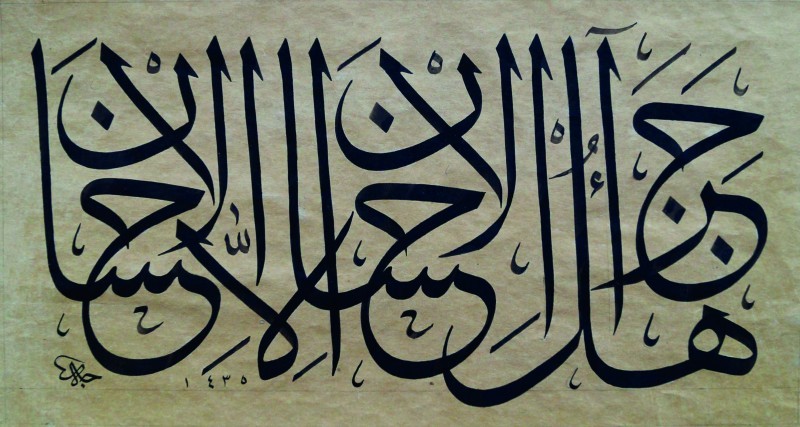 هل جزآءُ الاحسان الّا الاحسان
١٤٣٥